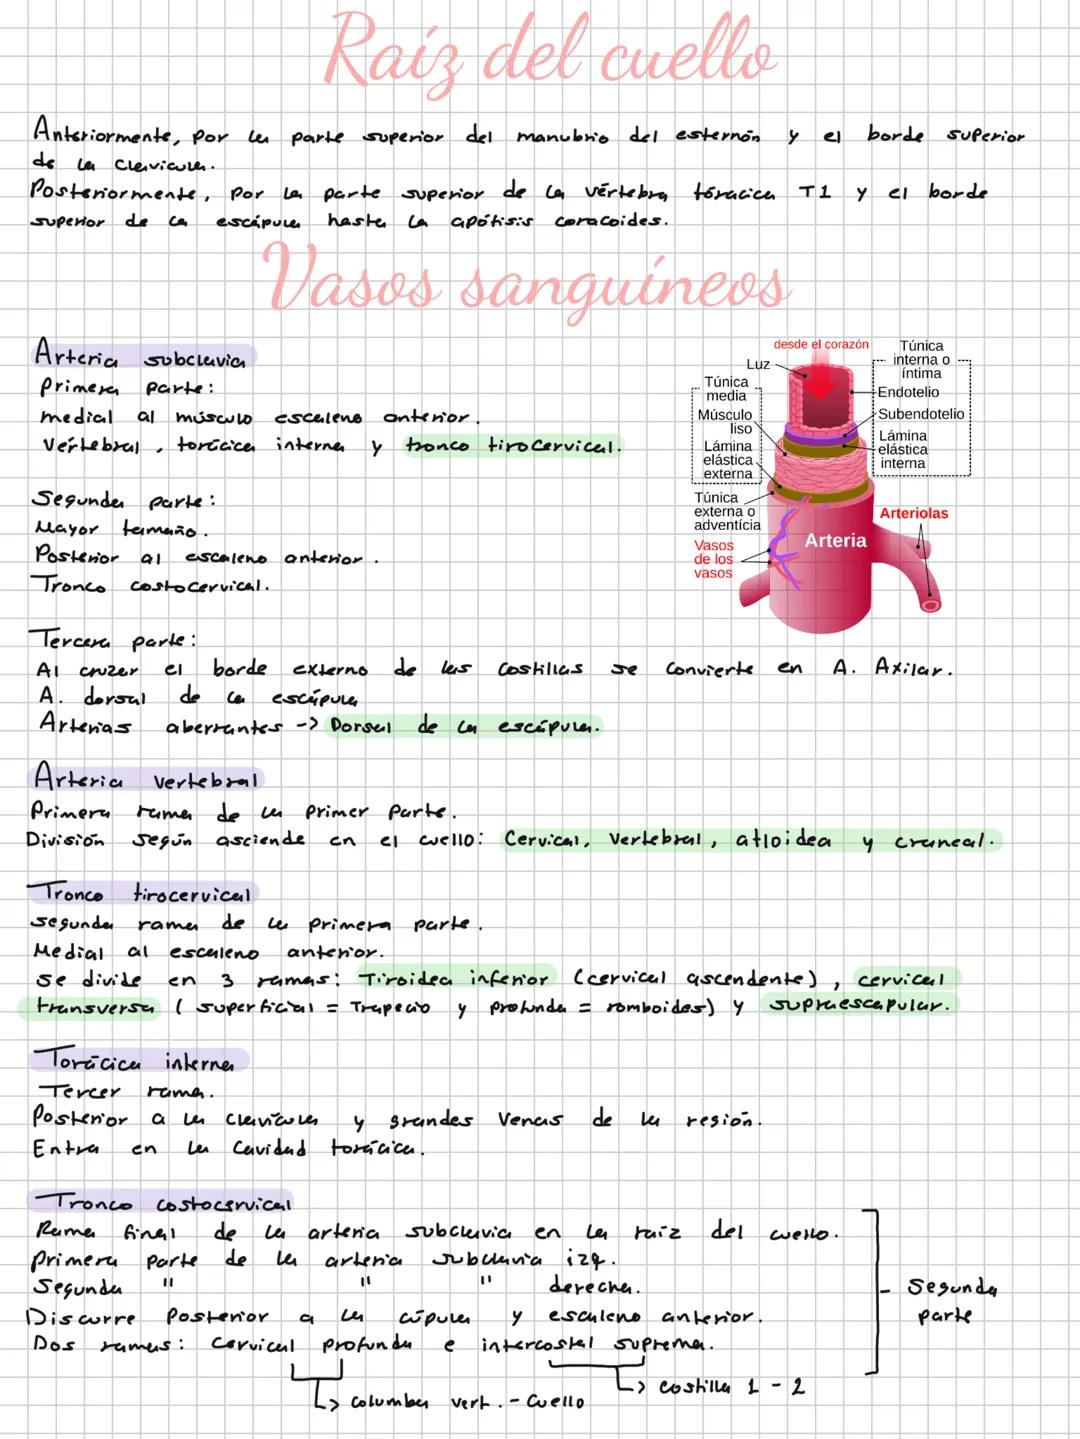 Raíz del cuello
Anteriormente, por la parte superior del manubrio del esternón y el borde superior
de la clavicula.
Posteriormente, por la parte superior de la vértebra tóracica T1 y el borde
superior de la escápula hasta la apófisis coracoides.
Vasos sanguíneos
Arteria subclavia
Primera parte:
medial al músculo escaleno anterior.
Vértebral, torácica interna y tronco tirocervical.
Segunda parte:
Mayor tamaño.
Posterior al escaleno anterior.
Tronco costocervical.
Tercera parte:
Al cruzar el borde externo de las costillas se convierte en A. Axilar.
A. dorsal de la escápula
Arterias aberrantes -> Dorsal de la escápula.
desde el corazón
Luz
Túnica
media
Músculo
liso
Lámina
elástica
externa
Túnica
externa o
adventícia
Vasos
de los
vasos
Túnica
interna o
íntima
Endotelio
Subendotelio
Lámina
elástica
interna
Arteriolas
Arteria
Arteria vertebral
Primera rama de la primer parte.
División según asciende en el cuello: Cervical, vertebral, atloidea y craneal.
Tronco tirocervical
segunda rama de la primera parte.
Medial al escaleno anterior.
se divide en 3 ramas: Tiroidea inferior (cervical ascendente), cervical
transversa (superficial = Trapecio y profunda = romboides) y supraescapular.
Torácica interna
Tercer rama.
Posterior a la clavícula y grandes venas de la región.
Entra en la cavidad torácica.
Tronco costocervical
Rama final de la arteria subclavia en la raíz del cuello.
Primera parte de la arteria subclavia izq.
Segunda " " " derecha.
Discurre posterior a la cúpula y escaleno anterior.
Dos ramas: Cervical profunda e intercostal suprema.
Segunda
parte
-> costilla 1 - 2
-> columba vert. - Cuello